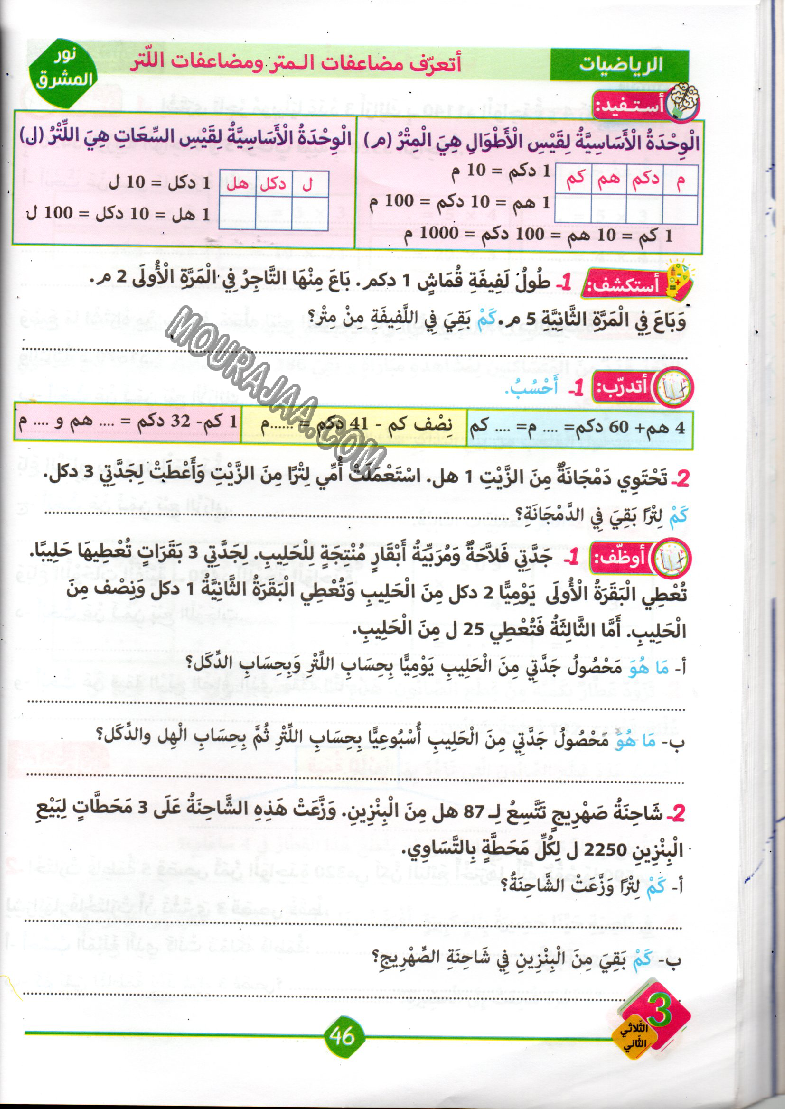 الرياضيات
أتعرّف مضاعفات المتر ومضاعفات اللّتر
نور
المشرق
أستفيد:
الْوِحْدَةُ الْأَسَاسِيَّةُ لِقَيْسِ الْأَطْوَالِ هِيَ الْمِتْرُ (م)
م دكم هم كم
1 دكم = 10 م
1 هم = 10 دكم = 100 م
1 كم = 10 هم = 100 دكم = 1000 م
الْوِحْدَةُ الْأَسَاسِيَّةُ لِقَيْسِ السِّعَاتِ هِيَ اللِّتْرُ (ل)
ل دكل هل
1 دكل = 10 ل
1 هل = 10 دكل = 100 ل
أستكشف: 1- طُولُ لَفِيفَةِ قُمَاشٍ 1 دكم. بَاعَ مِنْهَا التَّاجِرُ فِي الْمَرَّةِ الْأُولَى 2 م.
وَبَاعَ فِي الْمَرَّةِ الثَّانِيَّةِ 5 م. كَمْ بَقِيَ فِي اللَّفِيفَةِ مِنْ مِتْرُ؟
أتدرّب: 1- أَحْسُبُ.
4 هم+ 60 دكم= .... م= .... كم
نِصْف كم - 41 دكم = ......م
1 كم- 32 دكم = .... هم و .... م
2- تَحْتَوِي دَمْجَانَةٌ مِنَ الزَّيْتِ 1 هل. اسْتَعْمَلَتْ أُمِّي لِتْرًا مِنَ الزَّيْتِ وَأَعْطَتْ لِجَدَّتِي 3 دكل.
كَمْ لِتْرًا بَقِيَ فِي الدَّمْجَانَةِ؟
أوظّف: 1- جَدَّتِي فَلَّاحَةٌ وَمُرَبِّيَّةُ أَبْقَارٍ مُنْتِجَةٍ لِلْحَلِيبِ. لِجَدَّتِي 3 بَقَرَاتٍ تُعْطِيهَا حَلِيبًا.
تُعْطِي الْبَقَرَةُ الْأُولَى يَوْمِيًّا 2 دكل مِنَ الْحَلِيبِ وَتُعْطِي الْبَقَرَةُ الثَّانِيَّةُ 1 دكل وَنِصْف مِنَ
الْحَلِيبِ. أَمَّا الثَّالِثَةُ فَتُعْطِي 25 ل مِنَ الْحَلِيبِ.
أ- مَا هُوَ مَحْصُولُ جَدَّتِي مِنَ الْحَلِيبِ يَوْمِيًّا بِحِسَابِ اللِّتْرِ وَبِحِسَابِ الدِّكَلِ؟
ب- مَا هُوَ مَحْصُولُ جَدَّتِي مِنَ الْحَلِيبِ أُسْبُوعِيًّا بِحِسَابِ اللِّتْرِ ثُمَّ بِحِسَابِ الْهِل والدِّكَلِ؟
2- شَاحِنَةُ صَهْرِيجٍ تَتَّسِعُ لِـ 87 هل مِنَ الْبِنْزِينِ. وَزَّعَتْ هَذِهِ الشَّاحِنَةُ عَلَى 3 مَحَطَّاتٍ لِبَيْعِ
الْبِنْزِينِ 2250 ل لِكُلِّ مَحَطَّةٍ بِالتَّسَاوِي.
أ- كَمْ لِتْرًا وَزَّعَتْ الشَّاحِنَةُ؟
ب- كَمْ بَقِيَ مِنَ الْبِنْزِينِ فِي شَاحِنَةِ الصِّهْرِيجِ؟
46
3
الثّلاثي
الثّاني
MOURAJAA.COM